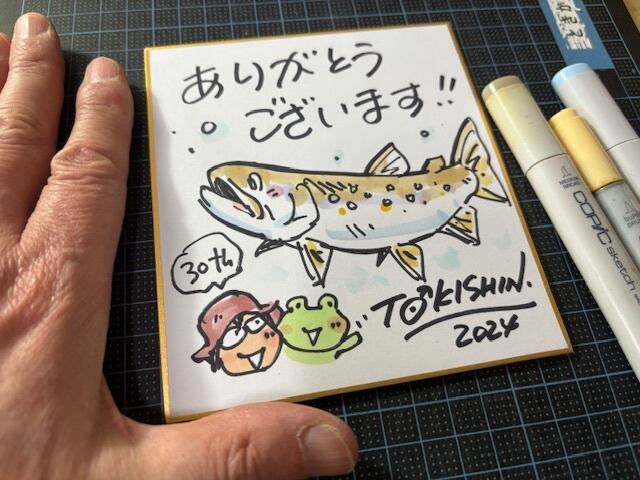 ありがとう
ございます!!
30th
TOKISHIN.
2024
COPIC sketch